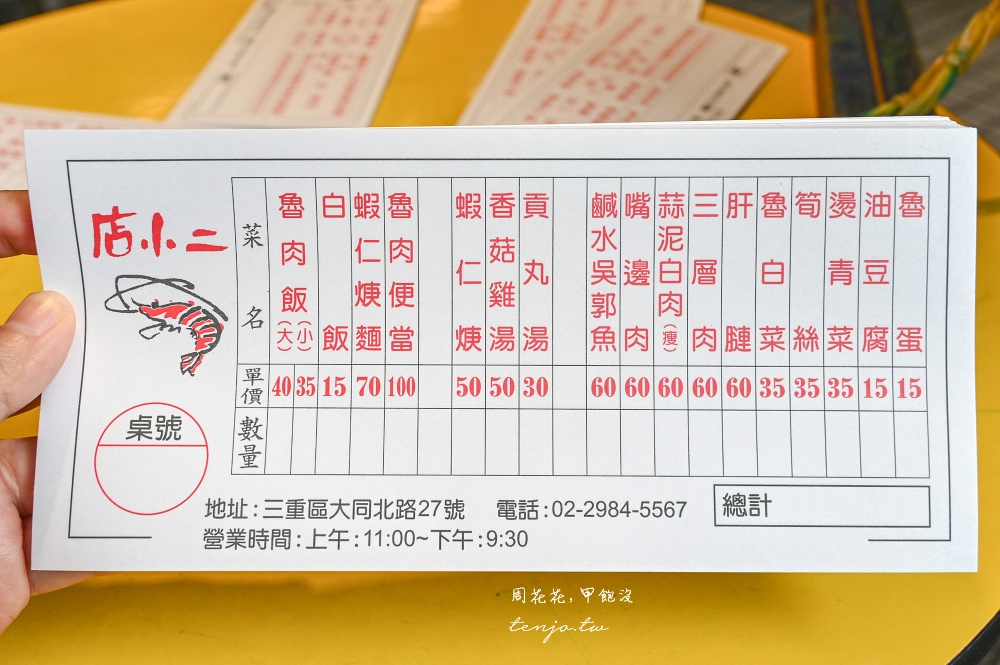 店小二
菜名 單價 數量
魯肉飯(大) 40
(小) 35
白飯 15
蝦仁焿麵 70
魯肉便當 100
蝦仁焿 50
香菇雞湯 50
貢丸湯 30
鹹水吳郭魚 60
嘴邊肉 60
蒜泥白肉(瘦) 60
三層肉 60
肝腱 60
魯白菜 35
筍絲 35
燙青菜 35
油豆腐 15
魯蛋 15
桌號
地址:三重區大同北路27號 電話:02-2984-5567
總計
營業時間:上午:11:00~下午:9:30
周花花,甲飽沒
tenjo.tw